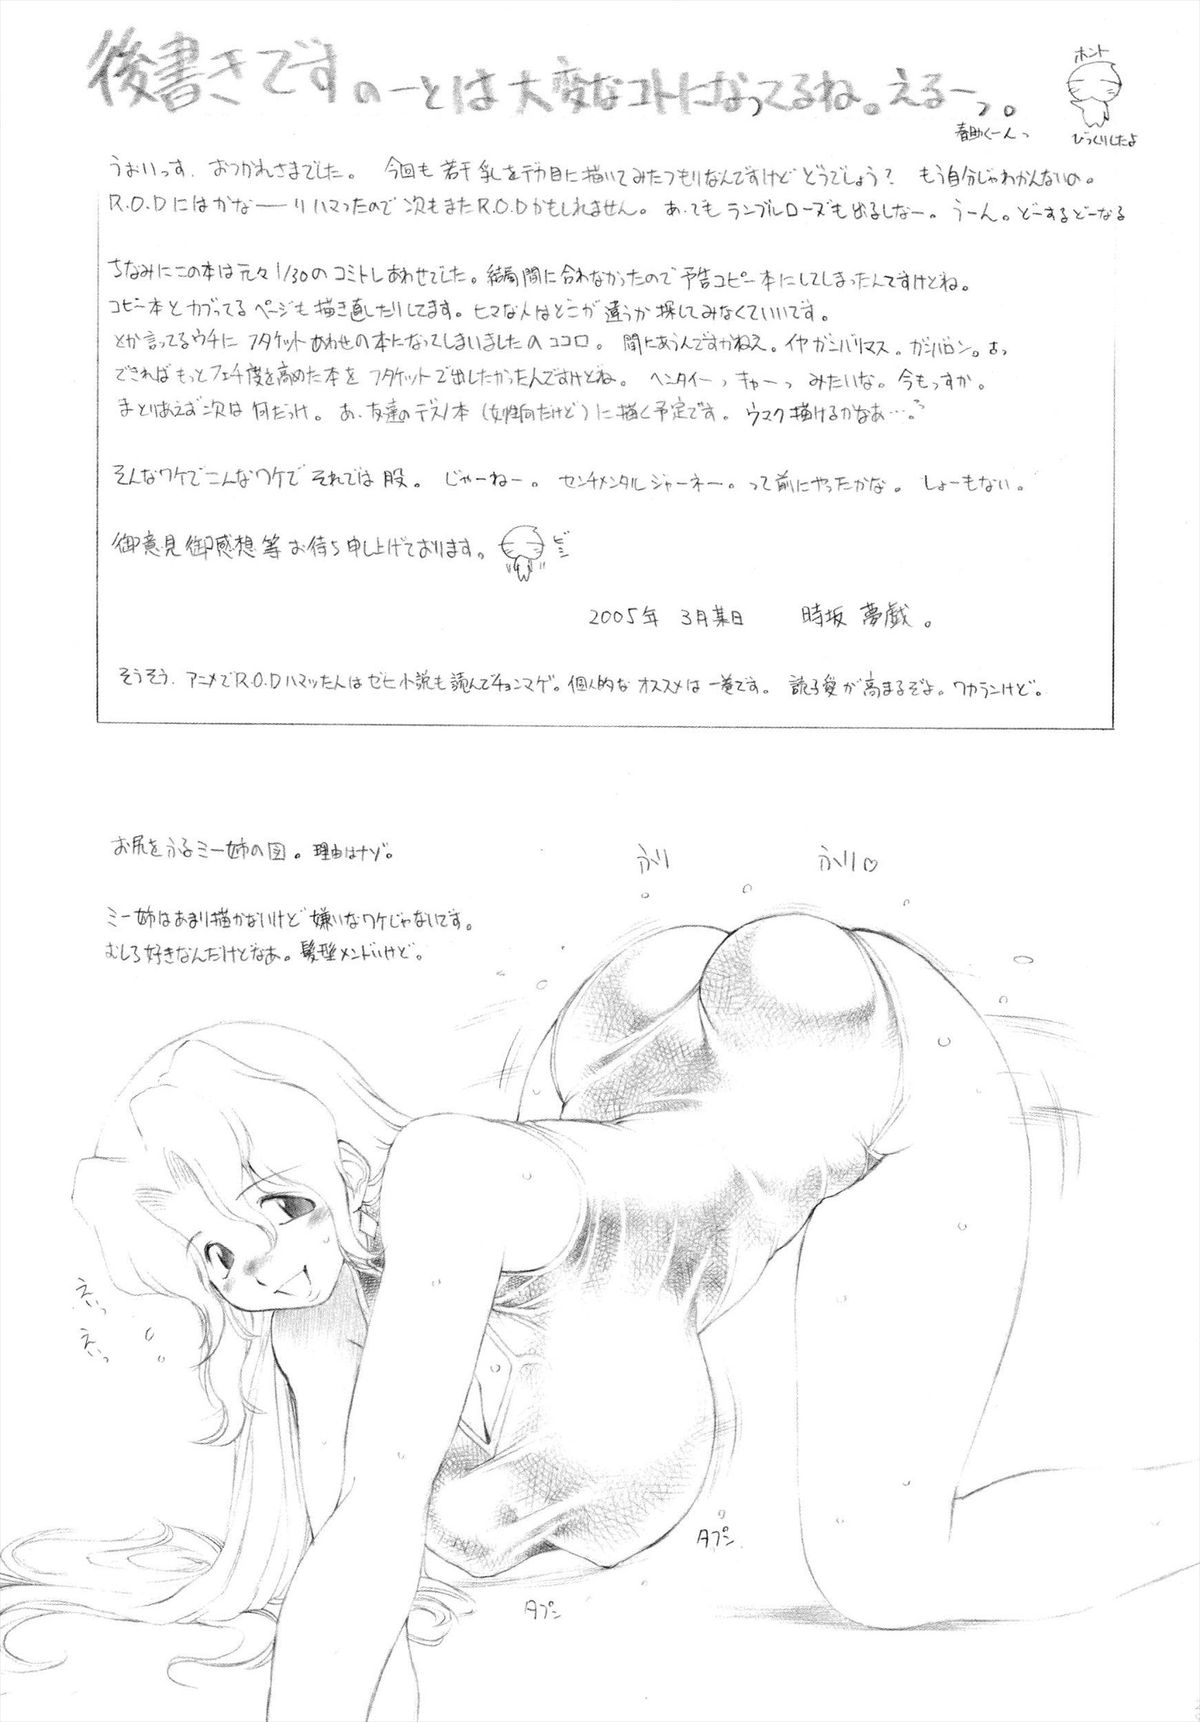 後書きです のーとは大変なコトになってるね。えるーっ。
春助くーんっ
ホント
びっくりしたよ
うぉいっす、おつかれさまでした。 今回も若干乳をデカ目に描いてみたつもりなんですけどどうでしょう? もう自分じゃわかんないの。
R.O.Dにはかな──りハマったので次もまたR.O.Dかもしれません。あ、でもランブルローズも出るしなー。うーん。どーするどーなる
ちなみにこの本は元々1/30のコミトレあわせでした。結局間に合わなかったので予告コピー本にしてしまったんですけどね。
コピー本とカブってるページも描き直したりしてます。ヒマな人はどこが違うか探してみなくていいです。
とか言ってるウチにフタケットあわせの本になってしまいましたのココロ。 間にあうんですかねえ。イヤガンバリマス。ガンバロン。よっ
できればもっとフェチ度を高めた本をフタケットで出したかったんですけどね。 ヘンタイーっ キャーっ みたいな。今もっすか。
まとりあえず次は何だっけ。あ、友達のデスノ本(女性向だけど)に描く予定です。 ウマク描けるかなあ…。
そんなワケでこんなワケで それでは股。 じゃーねー。 センチメンタルジャーネー。って前にやったかな。 しょーもない。
御意見御感想等お待ち申し上げております。
ピシ
2005年 3月某日 時坂 夢戯。
そうそう、アニメでR.O.Dハマッた人はゼヒ小説も読んでチョンマゲ。個人的なオススメは一巻です。 読子愛が高まるぞよ。ワカランけど。
お尻をふるミー姉の図。理由はナゾ。
ふり ふり♡
ミー姉はあまり描かないけど嫌いなワケじゃないです。
むしろ好きなんだけどなあ。髪型メンドいけど。
えっ
えっ
タプン
タプン